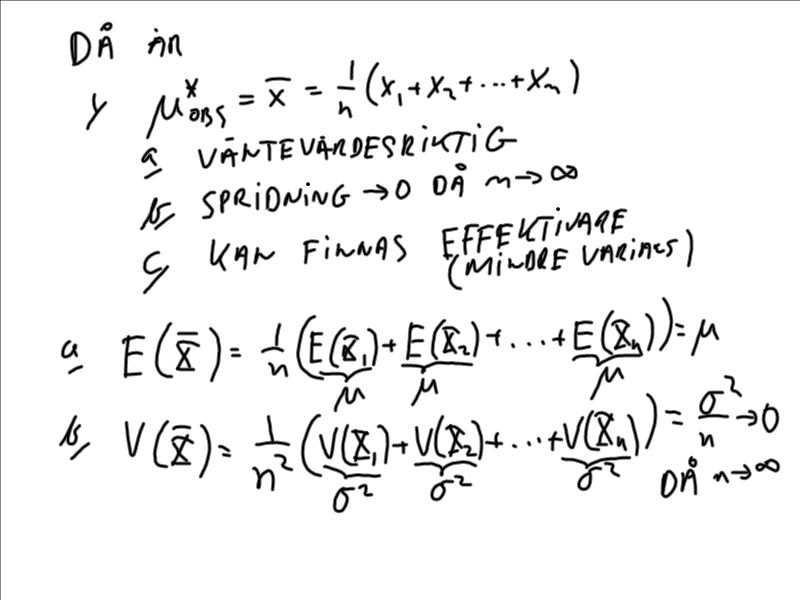 DÅ ÄR
1/ μ*OBS = x̄ = 1/n (x₁+x₂+...+xₙ)
a VÄNTEVÄRDESRIKTIG
b SPRIDNING →0 DÅ n→∞
c KAN FINNAS EFFEKTIVARE
(MINDRE VARIANS)
a E(X̄) = 1/n (E(X₁)+E(X₂)+...+E(Xₙ)) = μ
μ μ μ
b V(X̄) = 1/n² (V(X₁)+V(X₂)+...+V(Xₙ)) = σ²/n →0
σ² σ² σ² DÅ n→∞